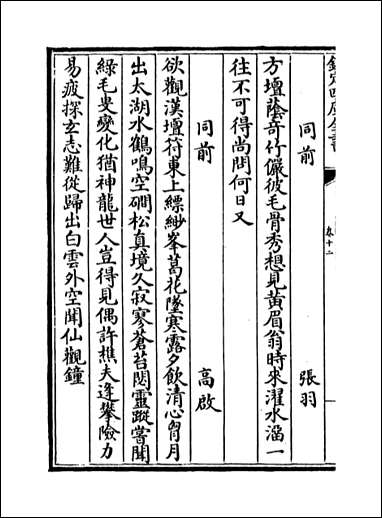 欽定四庫全書
卷十二
同前 張羽
方壇蔭奇竹儼彼毛骨秀想見黃眉翁時來濯水溜一
往不可得尚問何日又
同前 高啟
欲觀漢壇符東上縹緲峯葛花墜寒露夕飲清心胷月
出太湖水鶴鳴空磵松真境久寂寥蒼苔閟靈蹤嘗聞
綠毛叟變化猶神龍世人豈得見偶許樵夫逢攀險力
易疲探玄志難從歸出白雲外空聞仙觀鐘